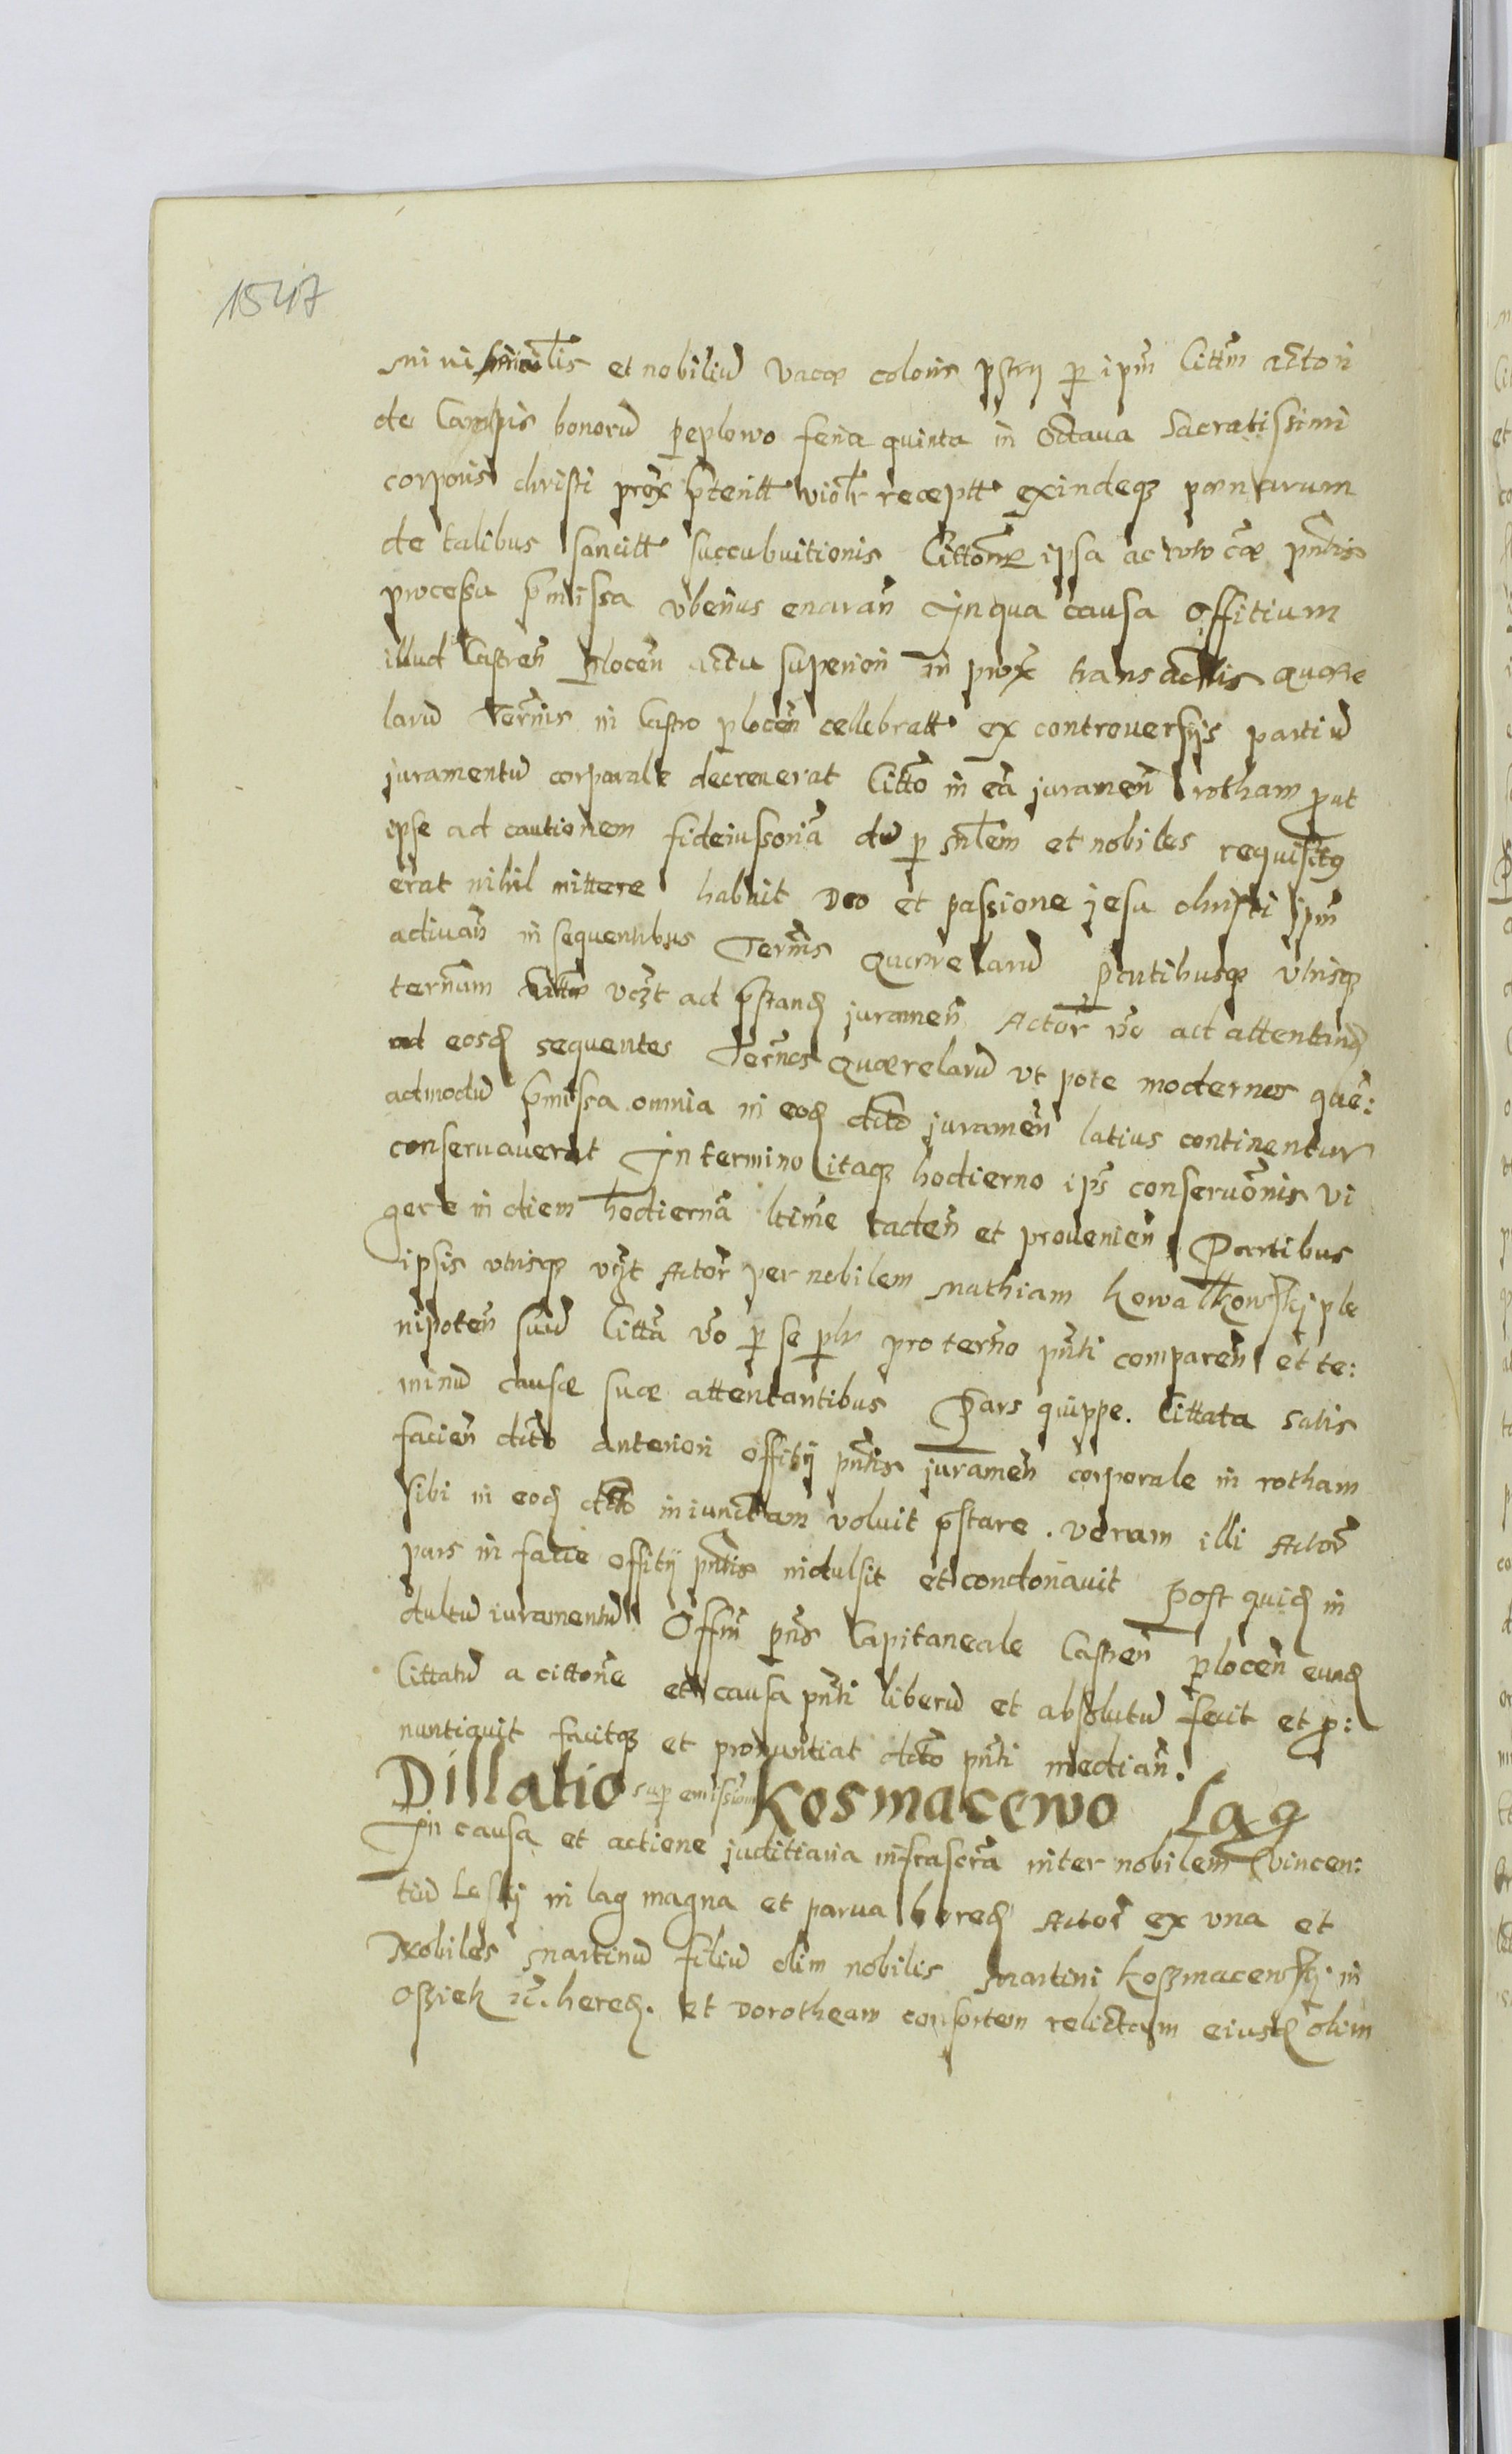 1547
et nobiliū vacce coloris p ipm̃ Citt̃m actori
de Campis bonorū peplowo feria quinta in Octaua Sacratissimi
corporis christi prox̃ p̃terit̃t violt̃r recept̃t exindeqz poenarum
de talibus sancit̃t succubuitionis Cittõne ipsa ac toto cãe pñtis
processu p̃missa vberius enaran̄ In qua causa Offitium
illud Castren̄ plocen̄ actu superiori in prox̃ transactis quære
larū Term̃is in Castro plocen̄ cellebratt ex controuersijs partiū
juramentū corporale decreuerat Citt̃o in eã juramen̄ rotham put
ipse ad cautionem fideiussoriã dū p et nobiles requisitg
erat nihil mittere habuit Deo et passione jesu christi ipm̃
adiuan̄ in sequentibus Term̃is Quærelarū pcutibusqz vtrisqz
term̃um vcz̃t ad p̃stand̄ juramen̄ Actor̃ v̄o ad attentand̄
ad eosd̄ sequentes Term̃os Quærelarū vt pote modernos quē:
admodū p̃missa omnia in eod̄ dc̃to juramen̄ latius continentur
conseruauerat In termino itaqz hodierno ips̄ conseruõnis vi
gere in diem hodiernã ltime caden̄ et prouenien̄ Partibus
ipsis vtrisqz vcz̃t Actor̃ per nobilem Mathiam Kowalkowskj ple
nipoten̄ suū Citt̃a v̄o p se plr̃ pro term̃o pñti comparen̄ et te:
minū causæ suæ attentantibus Pars quippe. Cittata satis
facien̄ dc̃to anteriori offitij pñtis juramen̄ corporale in rotham
sibi in eod̄ dc̃to iniunctam voluit p̃stare. verum illi Actor̃
pars in facie offitij pñtis indulsit et condonauit Post quid̄ in
dultū iuramentū Offm̃ pñs Capitaneale Castren̄ plocen̄ eund̄
Cittatū a cittõne et causa pñti liberū et absolutū fecit et p:
nuntiauit facitqz et pronuntiat dc̃to pñti median̄.
Dillatio sup emissione Kosmacewo Lag
In causa et actione juditiaria infrascr̃a inter nobilem vincen:
tiū Leskj in lag magna et parua hæred̄ Actor̃ ex vna et
Nobiles Martinū filiū olim nobilis Martini Koszmacewskj in
Osziek ic̃. hered̄. et Dorotheam consortem relictam eiusd̄ olim